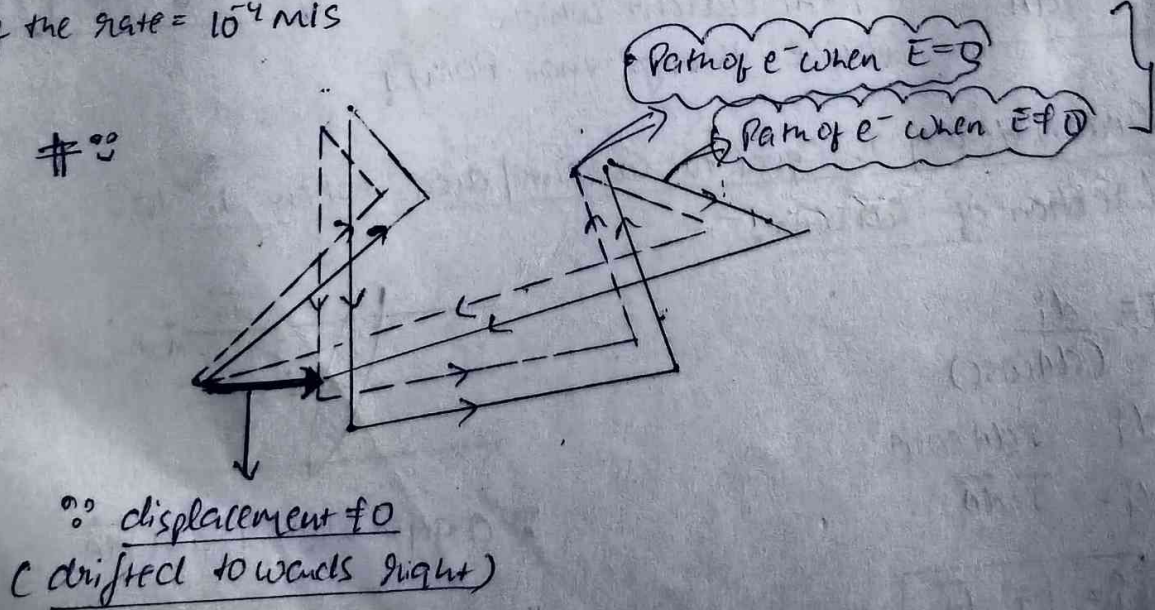 the rate = 10⁻⁴ m/s
Path of e⁻ when E=0
Path of e⁻ when E≠0
#
∴ displacement ≠0
(drifted towards right)